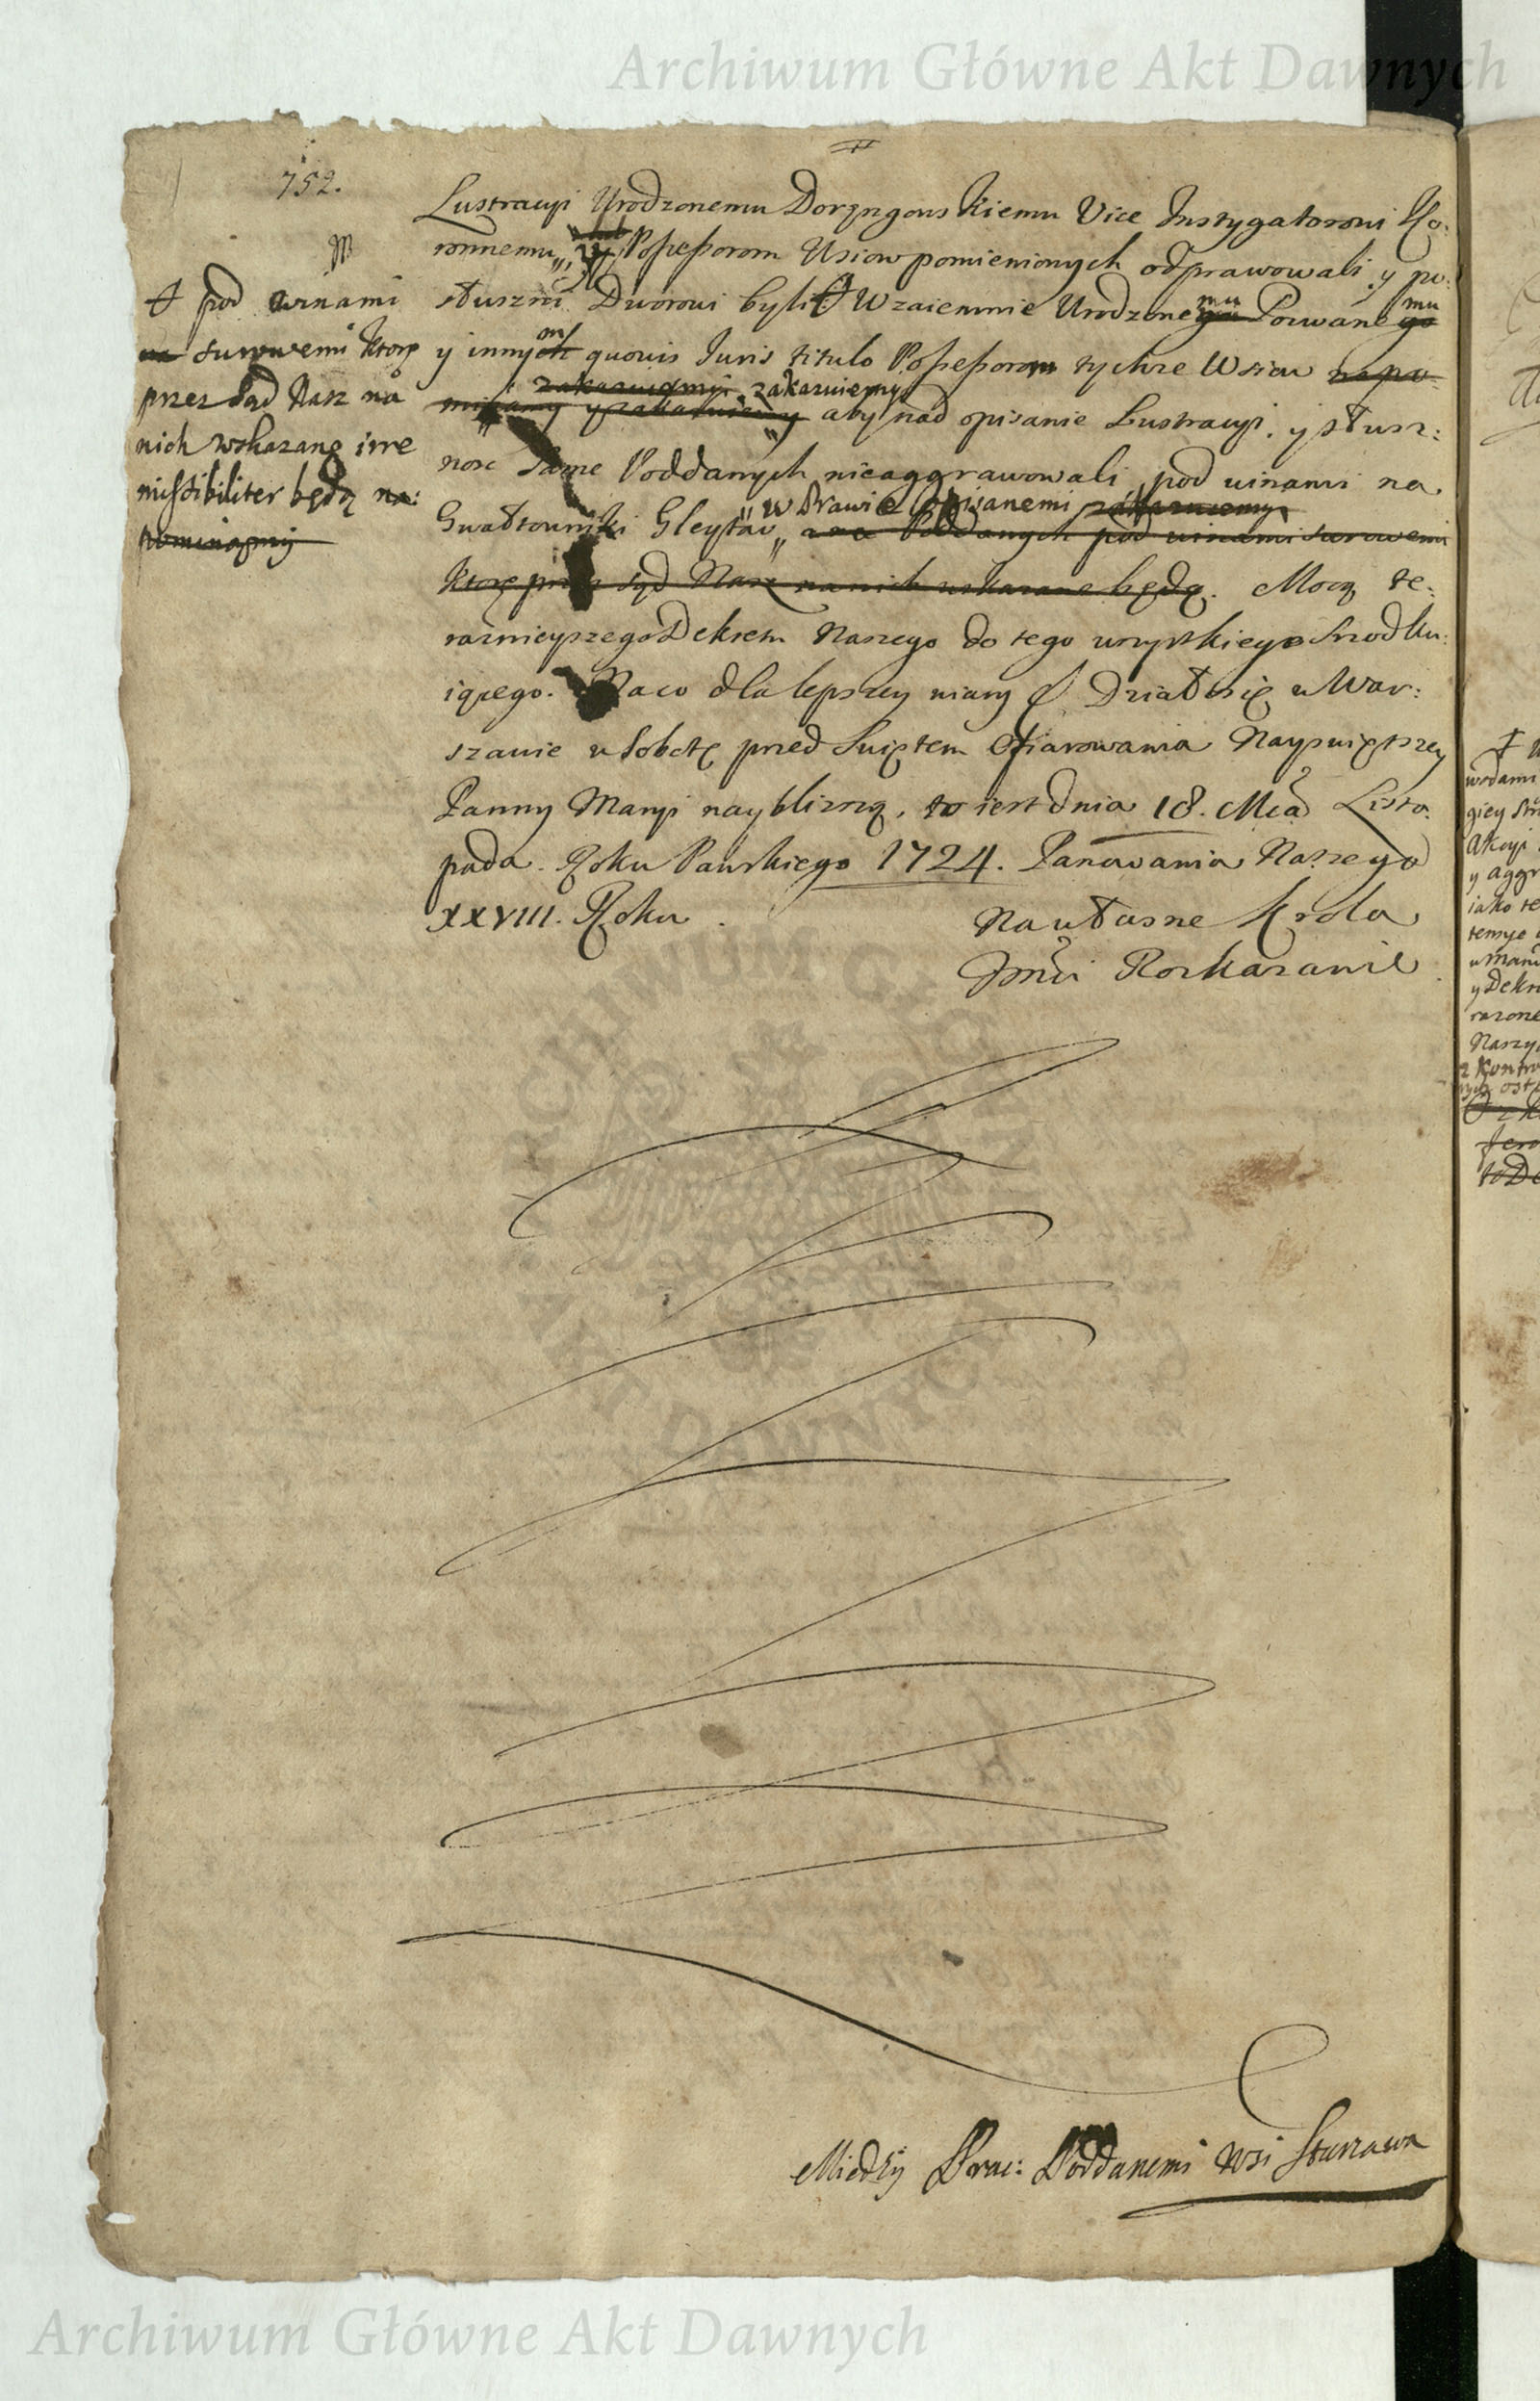 Archiwum Główne Akt Dawnych
752.
Lustracyi Urodzonemu Dorpngowskiemu Vice Instygatorowi Ko:
ronnemu, Possessorom Wsiow pomienionych odprawowali, y po:
słuszni Dworowi byli Wzaiemnie Urodzonego mu Pozwanego mu
y innych m quovis Iuris titulo Possessorom tychże Wsiow napo
minamy y zakazuiemy zakazuiemy zakazuiemy aby nad opisanie Lustracyi, y słusz:
ność same Poddanych nieaggrawowali, pod winami na
w Prawie opisanemi zakazuiemy
Gwałtowniki Gleytów, a na Poddanych pod winami surowemi
które przez sąd Nasz na nich wskazane będą. Mocą te:
raznieyszego Dekretu Naszego do tego wszystkiego Srzodku:
iącego. Na co dla lepszey wiary &c Działo się w War:
szawie w Sobotę przed Swiętem Ofiarowania Nayswiętszey
Panny Maryi naybliższą, to iest dnia 18. Mca Listo:
pada. Roku Pańskiego 1724. Panowania Naszego
XXVIII. Roku
Na własne Krola
Jmci Rozkazanie
pod winami
na surowemi ktore
przez Sąd Nasz na
nich wskazane irre
missibiliter będą na:
pominamy
Między Prac: Poddanemi Wsi Sturzawa
Archiwum Główne Akt Dawnych